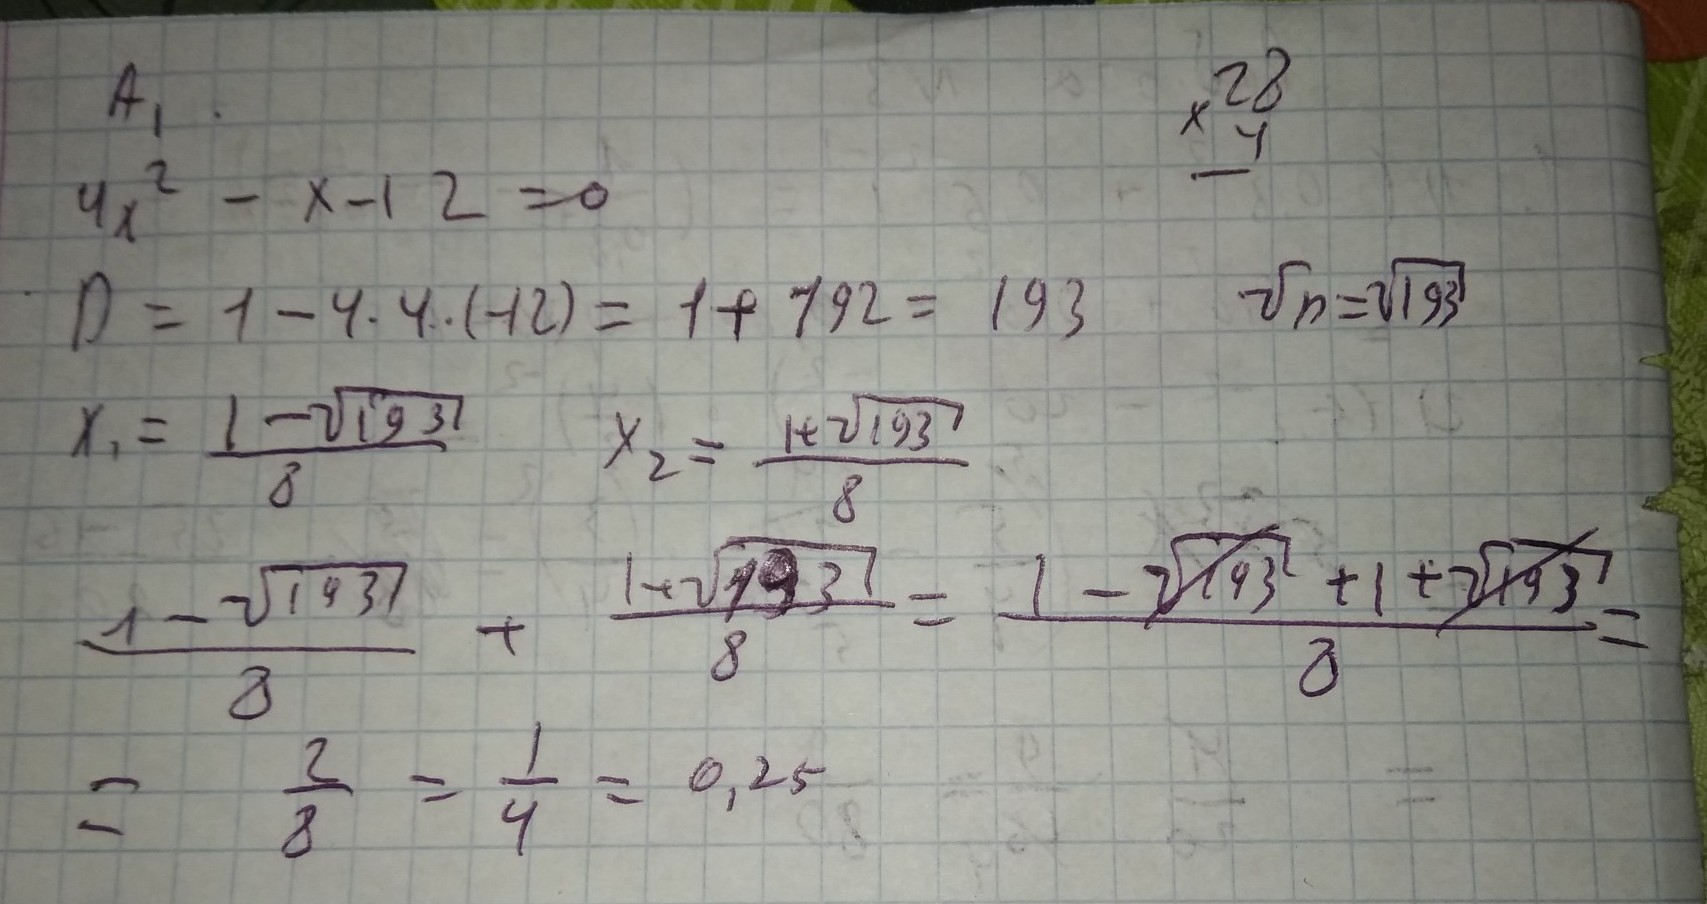 A₁.
× 28
4
4x² - x - 12 = 0
D = 1 - 4·4·(-12) = 1 + 192 = 193 √D = √193
x₁ = (1 - √193)/8 x₂ = (1 + √193)/8
(1 - √193)/8 + (1 + √193)/8 = (1 - √193 + 1 + √193)/8 =
= 2/8 = 1/4 = 0,25